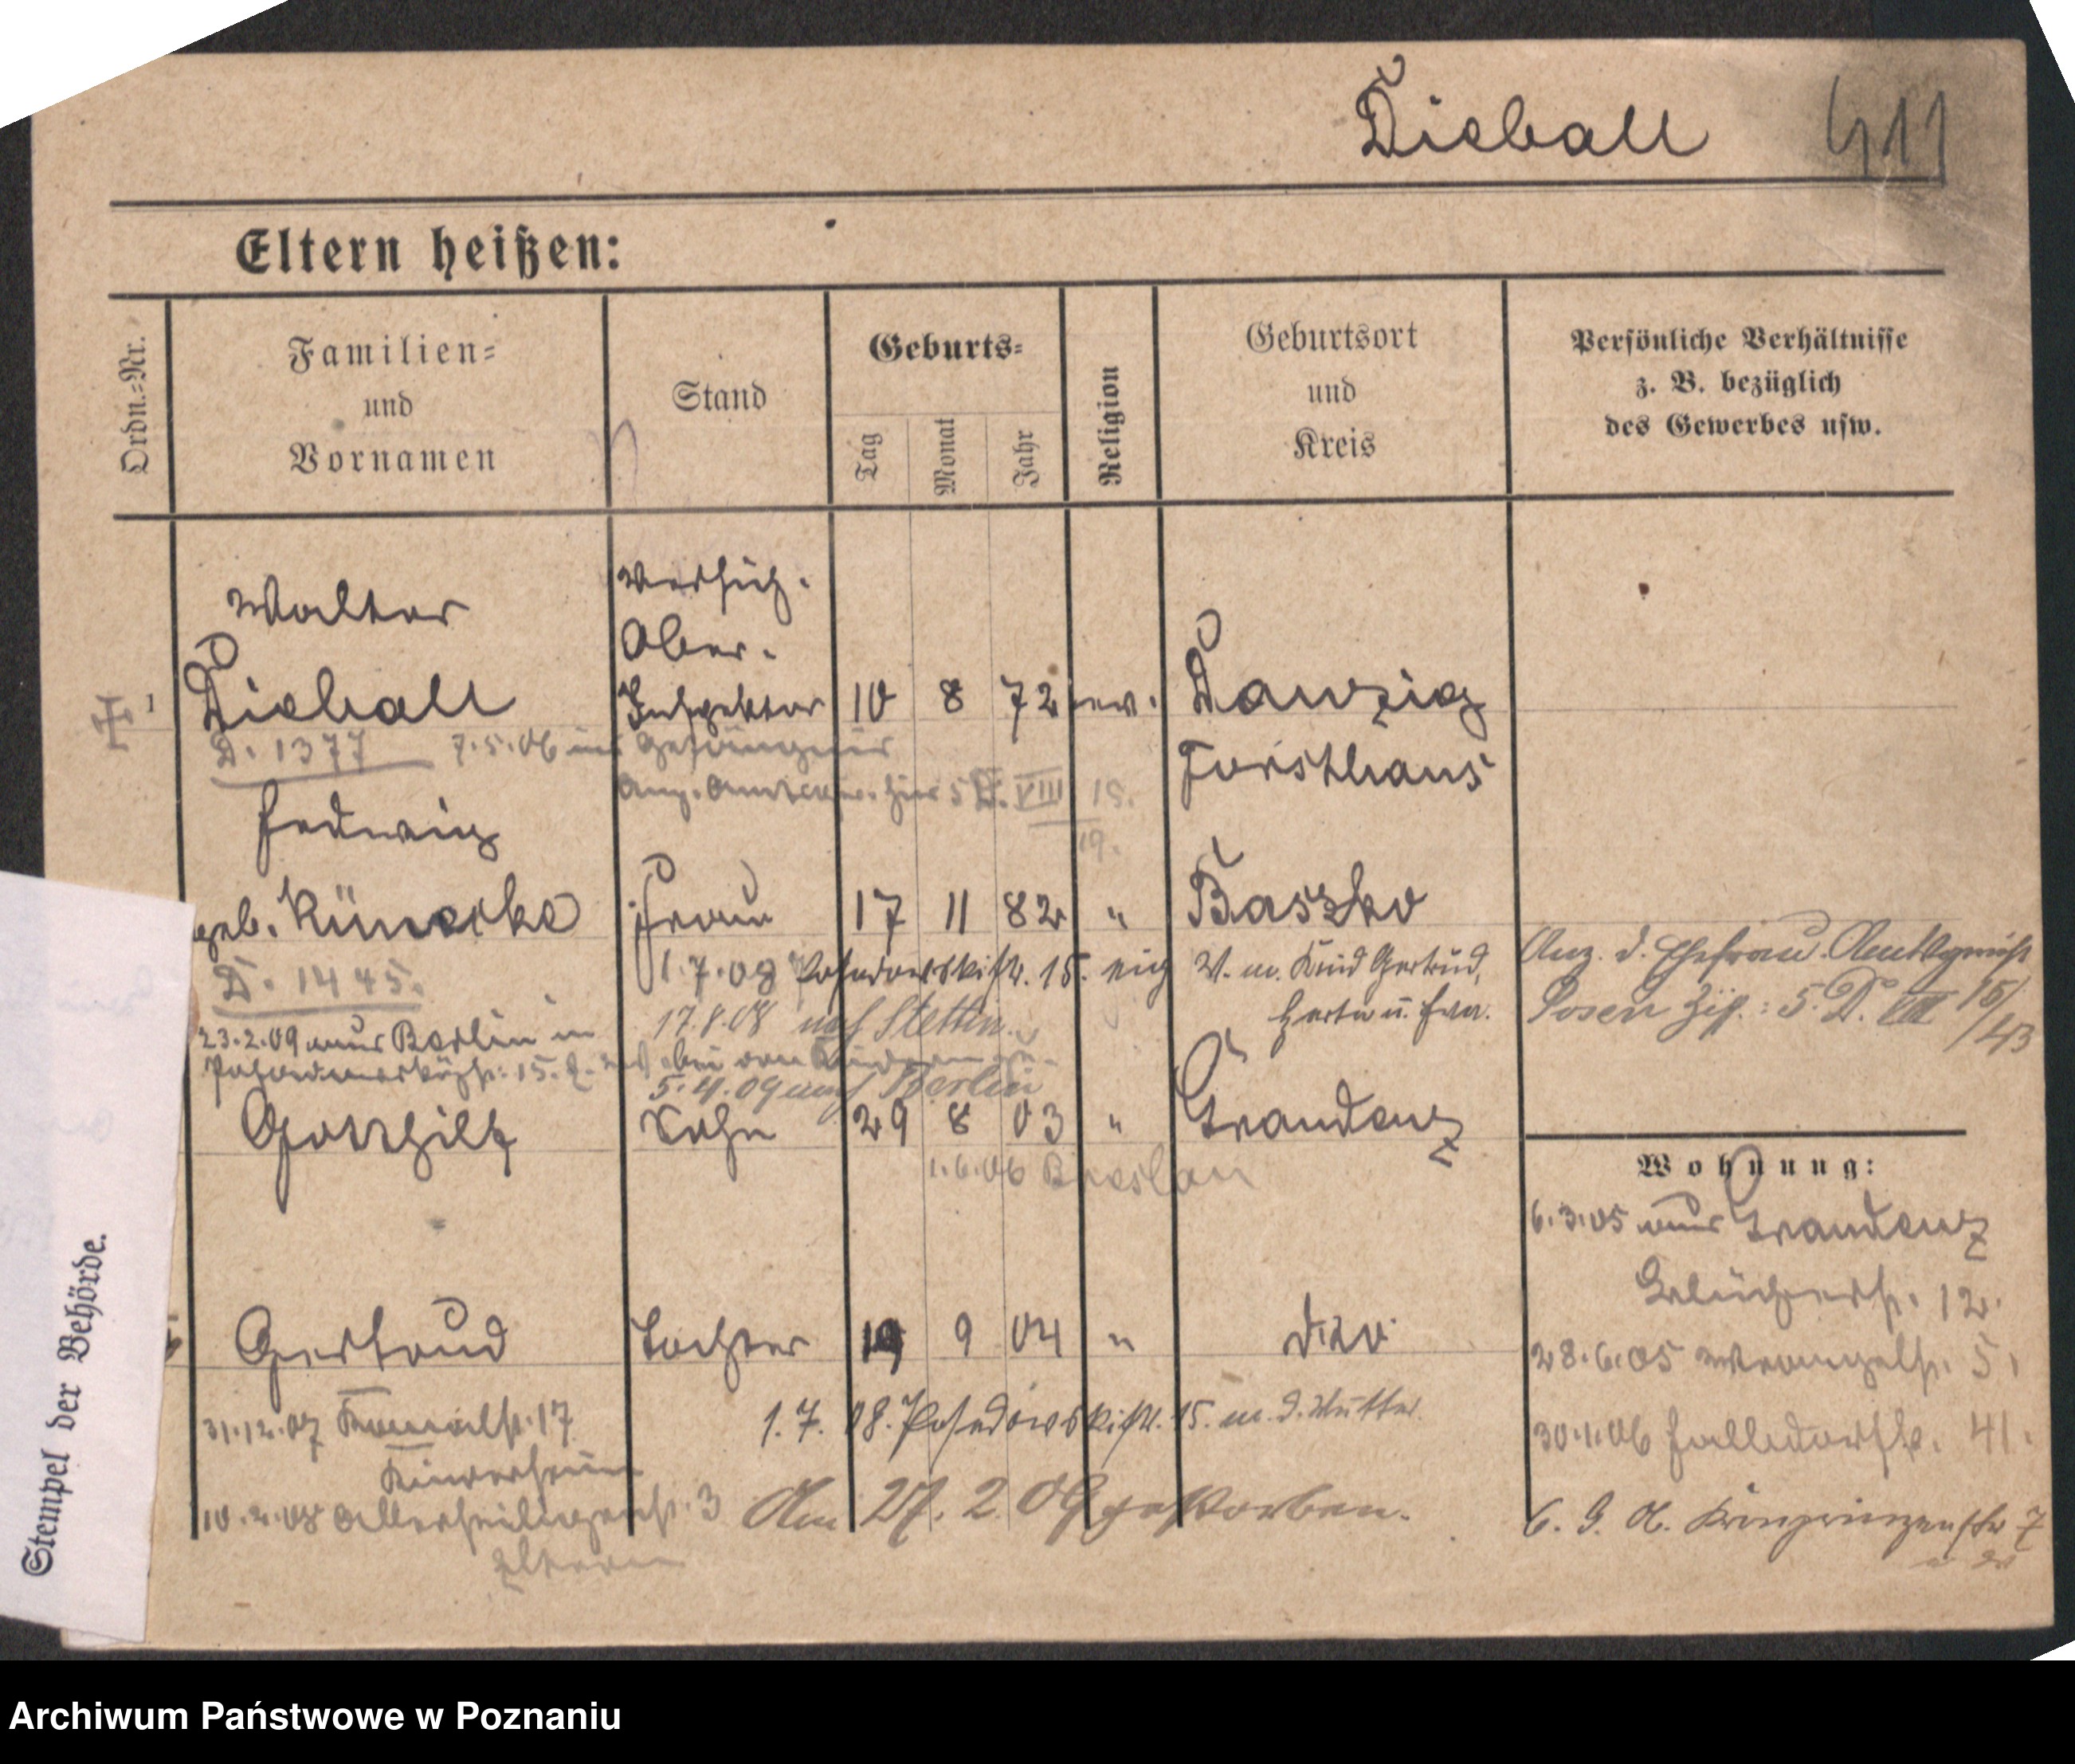 Dieball 411
Eltern heißen:
Ordn.=Nr.
Familien=
und
Vornamen
Stand
Geburts=
Tag
Monat
Jahr
Religion
Geburtsort
und
Kreis
Persönliche Verhältnisse
z. B. bezüglich
des Gewerbes usw.
Walter
Versich.
Ober.
1 Dieball Inspektor 10 8 72 ev. Danzig
D. 1377 7.5.06 ins Gefängnis
Forsthaus
VIII 15.
19.
Hedwig
geb. Frau 17 11 82 " Baszko
D. 1445.
1.7.08 Posadowskistr. 15. V. m. Kind Gertrud,
Herta u.
Anz. d. Ehefrau
Posen 5. D. VIII 15/
/43
23.2.09 aus Berlin in
17.8.08 nach Stettin.
5.4.09 nach Berlin
Gotthilf Sohn 29 8 03 " Graudenz
1.6.06 Breslau
Wohnung:
6.3.05 aus Graudenz
Blücherstr. 12.
28.6.05 Wrangelstr. 5.
30.1.06 41.
6. 9. 06. Kronprinzenstr 7
Gertrud Tochter 19 9 04 " dito
31.12.07 17
1.7.08. Posadowskistr. 15. m. d. Mutter.
10.2.08 Allerheiligenstr. 3
Eltern
Am 27. 2 09 gestorben.
Stempel der Behörde.
Archiwum Państwowe w Poznaniu